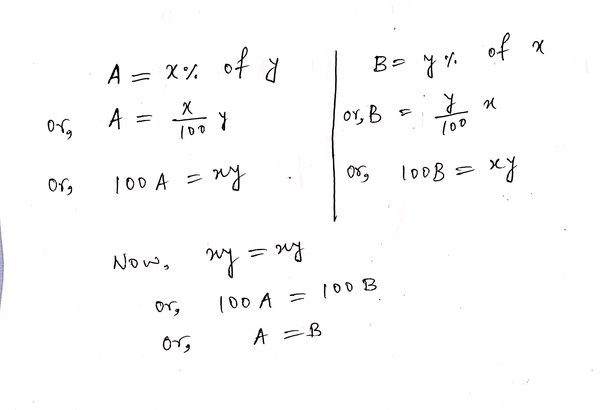 A = x% of y
or, A = x/100 y
or, 100 A = xy
B = y% of x
or, B = y/100 x
or, 100B = xy
Now, xy = xy
or, 100 A = 100 B
or, A = B